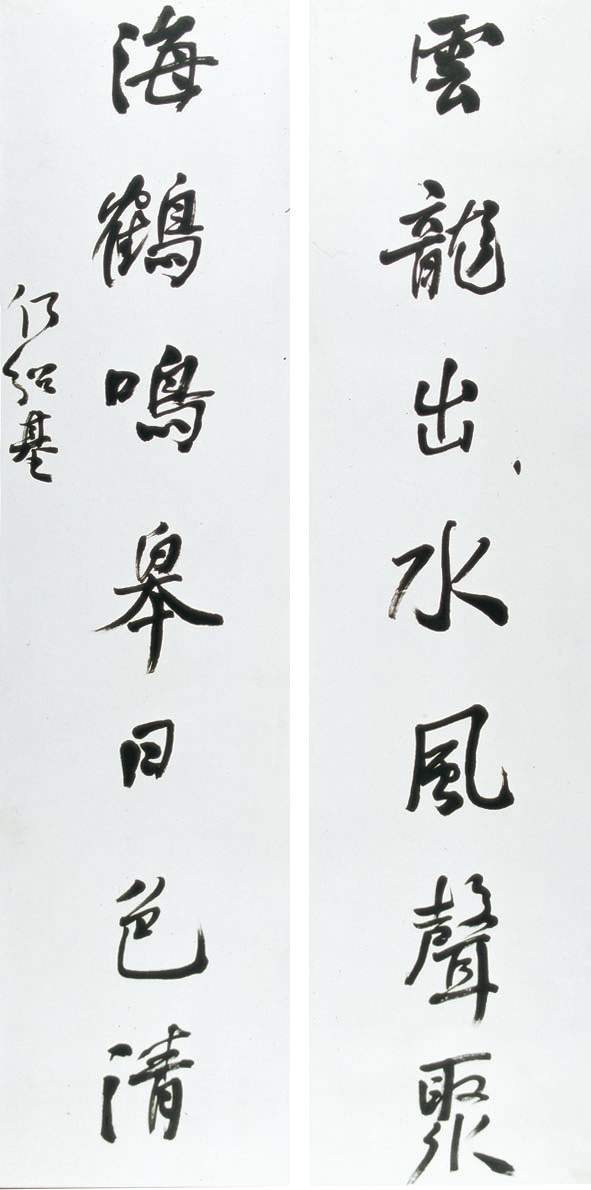 雲龍出水風聲聚
海鶴鳴皋日色清
何紹基